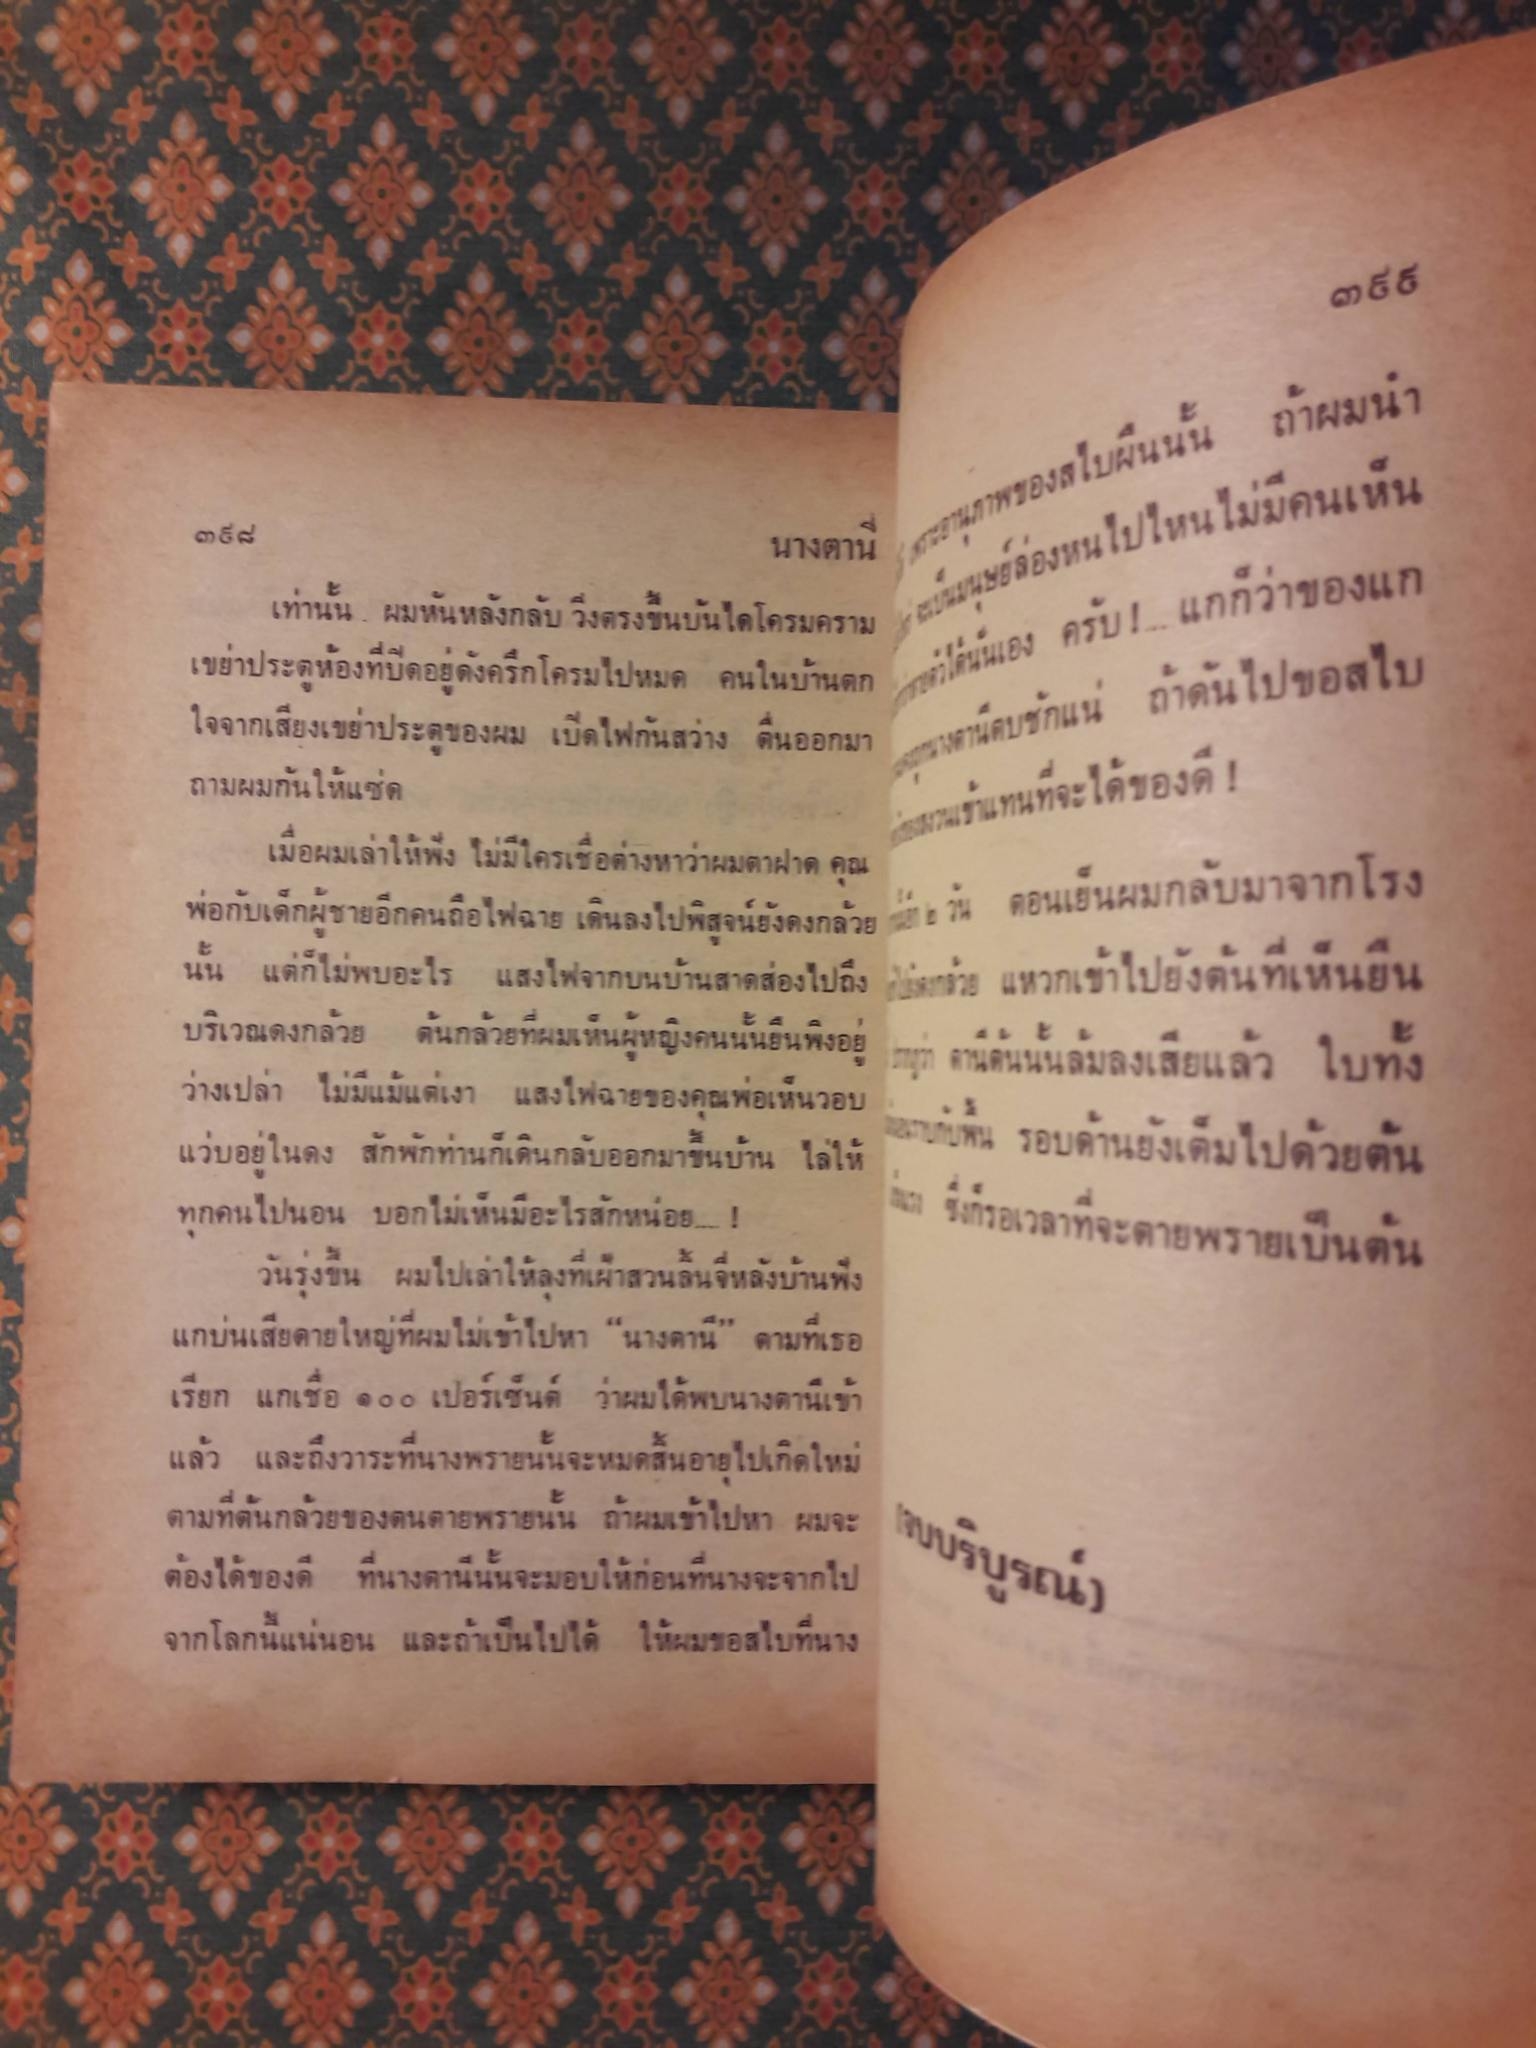 ๓๙๘
นางตานี
เท่านั้น . ผมหันหลังกลับ วิ่งตรงขึ้นบันไดโครมคราม
เขย่าประตูห้องที่ปิดอยู่ดังครึกโครมไปหมด คนในบ้านตก
ใจจากเสียงเขย่าประตูของผม เปิดไฟกันสว่าง ตื่นออกมา
ถามผมกันให้แซ่ด
เมื่อผมเล่าให้ฟัง ไม่มีใครเชื่อต่างหาว่าผมตาฝาด คุณ
พ่อกับเด็กผู้ชายอีกคนถือไฟฉาย เดินลงไปพิสูจน์ยังดงกล้วย
นั้น แต่ก็ไม่พบอะไร แสงไฟจากบนบ้านสาดส่องไปถึง
บริเวณดงกล้วย ต้นกล้วยที่ผมเห็นผู้หญิงคนนั้นยืนพิงอยู่
ว่างเปล่า ไม่มีแม้แต่เงา แสงไฟฉายของคุณพ่อเห็นวอบ
แว่บอยู่ในดง สักพักท่านก็เดินกลับออกมาขึ้นบ้าน ไล่ให้
ทุกคนไปนอน บอกไม่เห็นมีอะไรสักหน่อย.... !
วันรุ่งขึ้น ผมไปเล่าให้ลุงที่เฝ้าสวนลิ้นจี่หลังบ้านฟัง
แกบ่นเสียดายใหญ่ที่ผมไม่เข้าไปหา “นางตานี” ตามที่เธอ
เรียก แกเชื่อ ๑๐๐ เปอร์เซ็นต์ ว่าผมได้พบนางตานีเข้า
แล้ว และถึงวาระที่นางพรายนั้นจะหมดสิ้นอายุไปเกิดใหม่
ตามที่ต้นกล้วยของตนตายพรายนั้น ถ้าผมเข้าไปหา ผมจะ
ต้องได้ของดี ที่นางตานีนั้นจะมอบให้ก่อนที่นางจะจากไป
จากโลกนี้แน่นอน และถ้าเป็นไปได้ ให้ผมขอสไบที่นาง
๓๙๙
เพราะอานุภาพของสไบผืนนั้น ถ้าผมนำ
จะเป็นมนุษย์ล่องหนไปไหนไม่มีคนเห็น
ได้นั่นเอง ครับ !.... แกก็ว่าของแก
ถูกนางตานีตบชักแน่ ถ้าดันไปขอสไบ
เข้าแทนที่จะได้ของดี !
อีก ๒ วัน ตอนเย็นผมกลับมาจากโรง
ดงกล้วย แหวกเข้าไปยังต้นที่เห็นยืน
ปรากฏว่า ตานีต้นนั้นล้มลงเสียแล้ว ใบทั้ง
ราบกับพื้น รอบด้านยังเต็มไปด้วยต้น
ซึ่งก็รอเวลาที่จะตายพรายเป็นต้น
(จบบริบูรณ์)